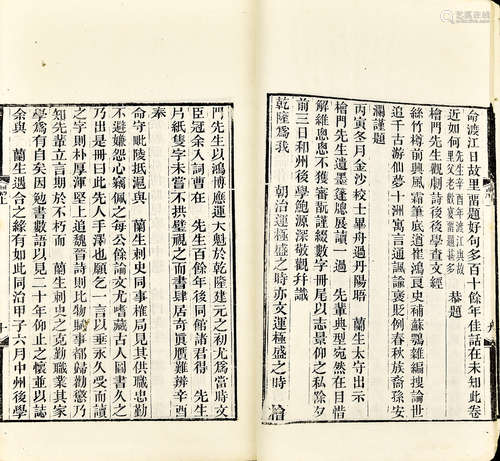 艺狐在线
命渡江日故里曹題好句多百十餘年佳話在未知此卷
近如何 先生辛酉年渡江 恭題
檜門先生觀劇詩後後學查文經
絲竹樽前興風霜筆底道崔鴻良史補蘇鶚雜編搜論世
追千古游仙夢十洲寓言通諷諭褒貶例春秋族裔孫安
瀾謹題
丙寅冬月金沙校士畢舟過丹陽晤 蘭生太守出示
檜門先生遺墨篷牎展讀一過 先輩典型宛然在目惜
解維悤悤不獲審翫謹綴數字冊尾以志景仰之私除夕
前三日和州後學鮑源深敬觀幷識
乾隆爲我 朝治運極盛之時亦文運極盛之時 檜
門先生以鴻博應運大魁於乾隆建元之初尤爲當時文
臣冠余入詞曹在 先生百餘年後同館諸君得 先生
片紙隻字未嘗不拱璧視之而書肆居奇眞贋難辨辛酉
奉
命守毗陵抵滬與 蘭生刺史同事榷局見其供職忠勤
不避嫌怨心竊佩之每公餘論文尤嗜藏古人圖書久之
乃出是冊曰此先人手澤也願乞一言以垂永久受而讀
之字則朴厚渾堅上追魏晉詩則比物賦事都歸勸懲乃
知先輩立言期於不朽而 蘭生刺史之克勤職業其家
學爲有自矣因勉書數語以見二十年仰止之懷並以誌
余與 蘭生遇合之緣有如此同治甲子六月中州後學